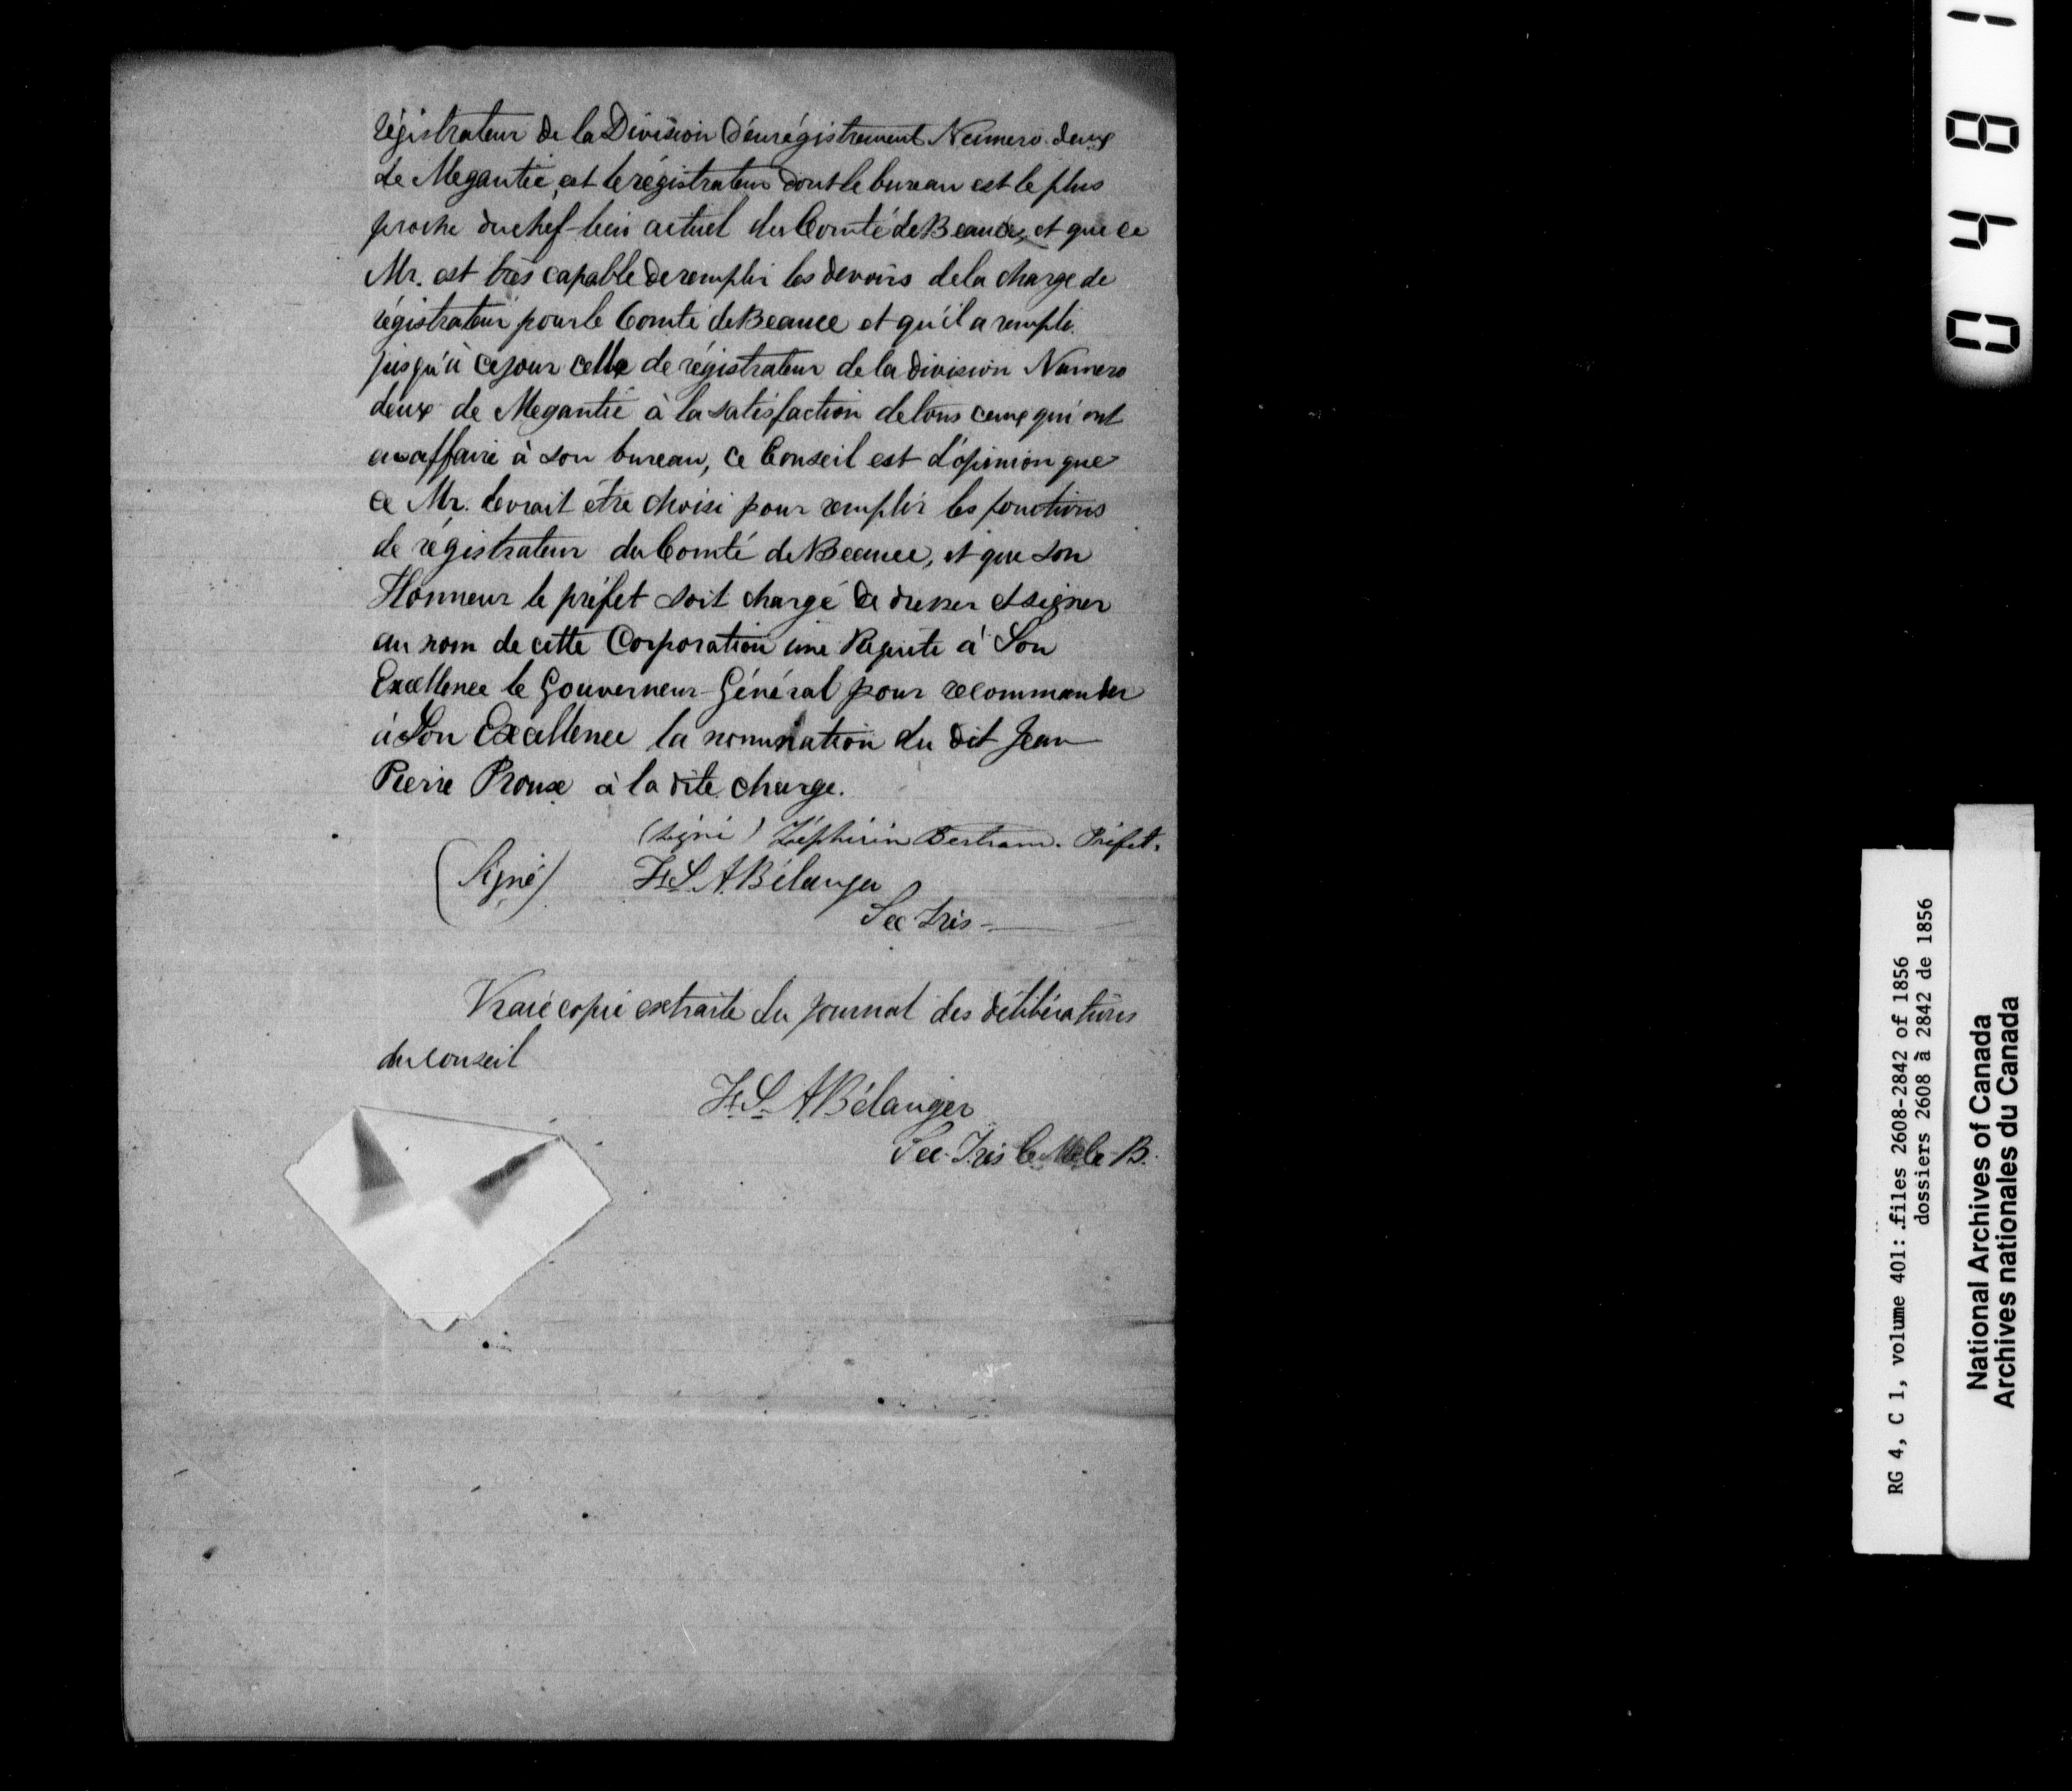 régistrateur de la Division d'enrégistrement Numero deux
de Megantic, est le régistrateur dont le bureau est le plus
proche du chef-lieu actuel du Comté de Beauce, et que ce
Mr. est très capable de remplir les devoirs de la charge de
régistrateur pour le Comté de Beauce et qu'il a rempli
jusqu'à ce jour celle de régistrateur de la division Numero
deux de Megantic à la satisfaction de tous ceux qui ont
eu affaire à son bureau, ce Conseil est d'opinion que
ce Mr. devrait être choisi pour remplir les fonctions
de régistrateur du Comté de Beauce, et que son
Honneur le préfet soit chargé de dresser et signer
au nom de cette Corporation une Requête à Son
Excellence le Gouverneur-Général pour recommander
à Son Excellence la nomination du dit Jean
Pierre Proux à la dite charge.
(signé) Zéphirin Bertrand. Préfet.
(Signé) Fs. S. A. Bélanger
Sec Trés
Vraie copie extraite du journal des délibérations
du conseil
Fs. S. A. Bélanger
Sec. Trés B.
0481
RG 4, C 1, volume 401: files 2608-2842 of 1856
dossiers 2608 à 2842 de 1856
National Archives of Canada
Archives nationales du Canada